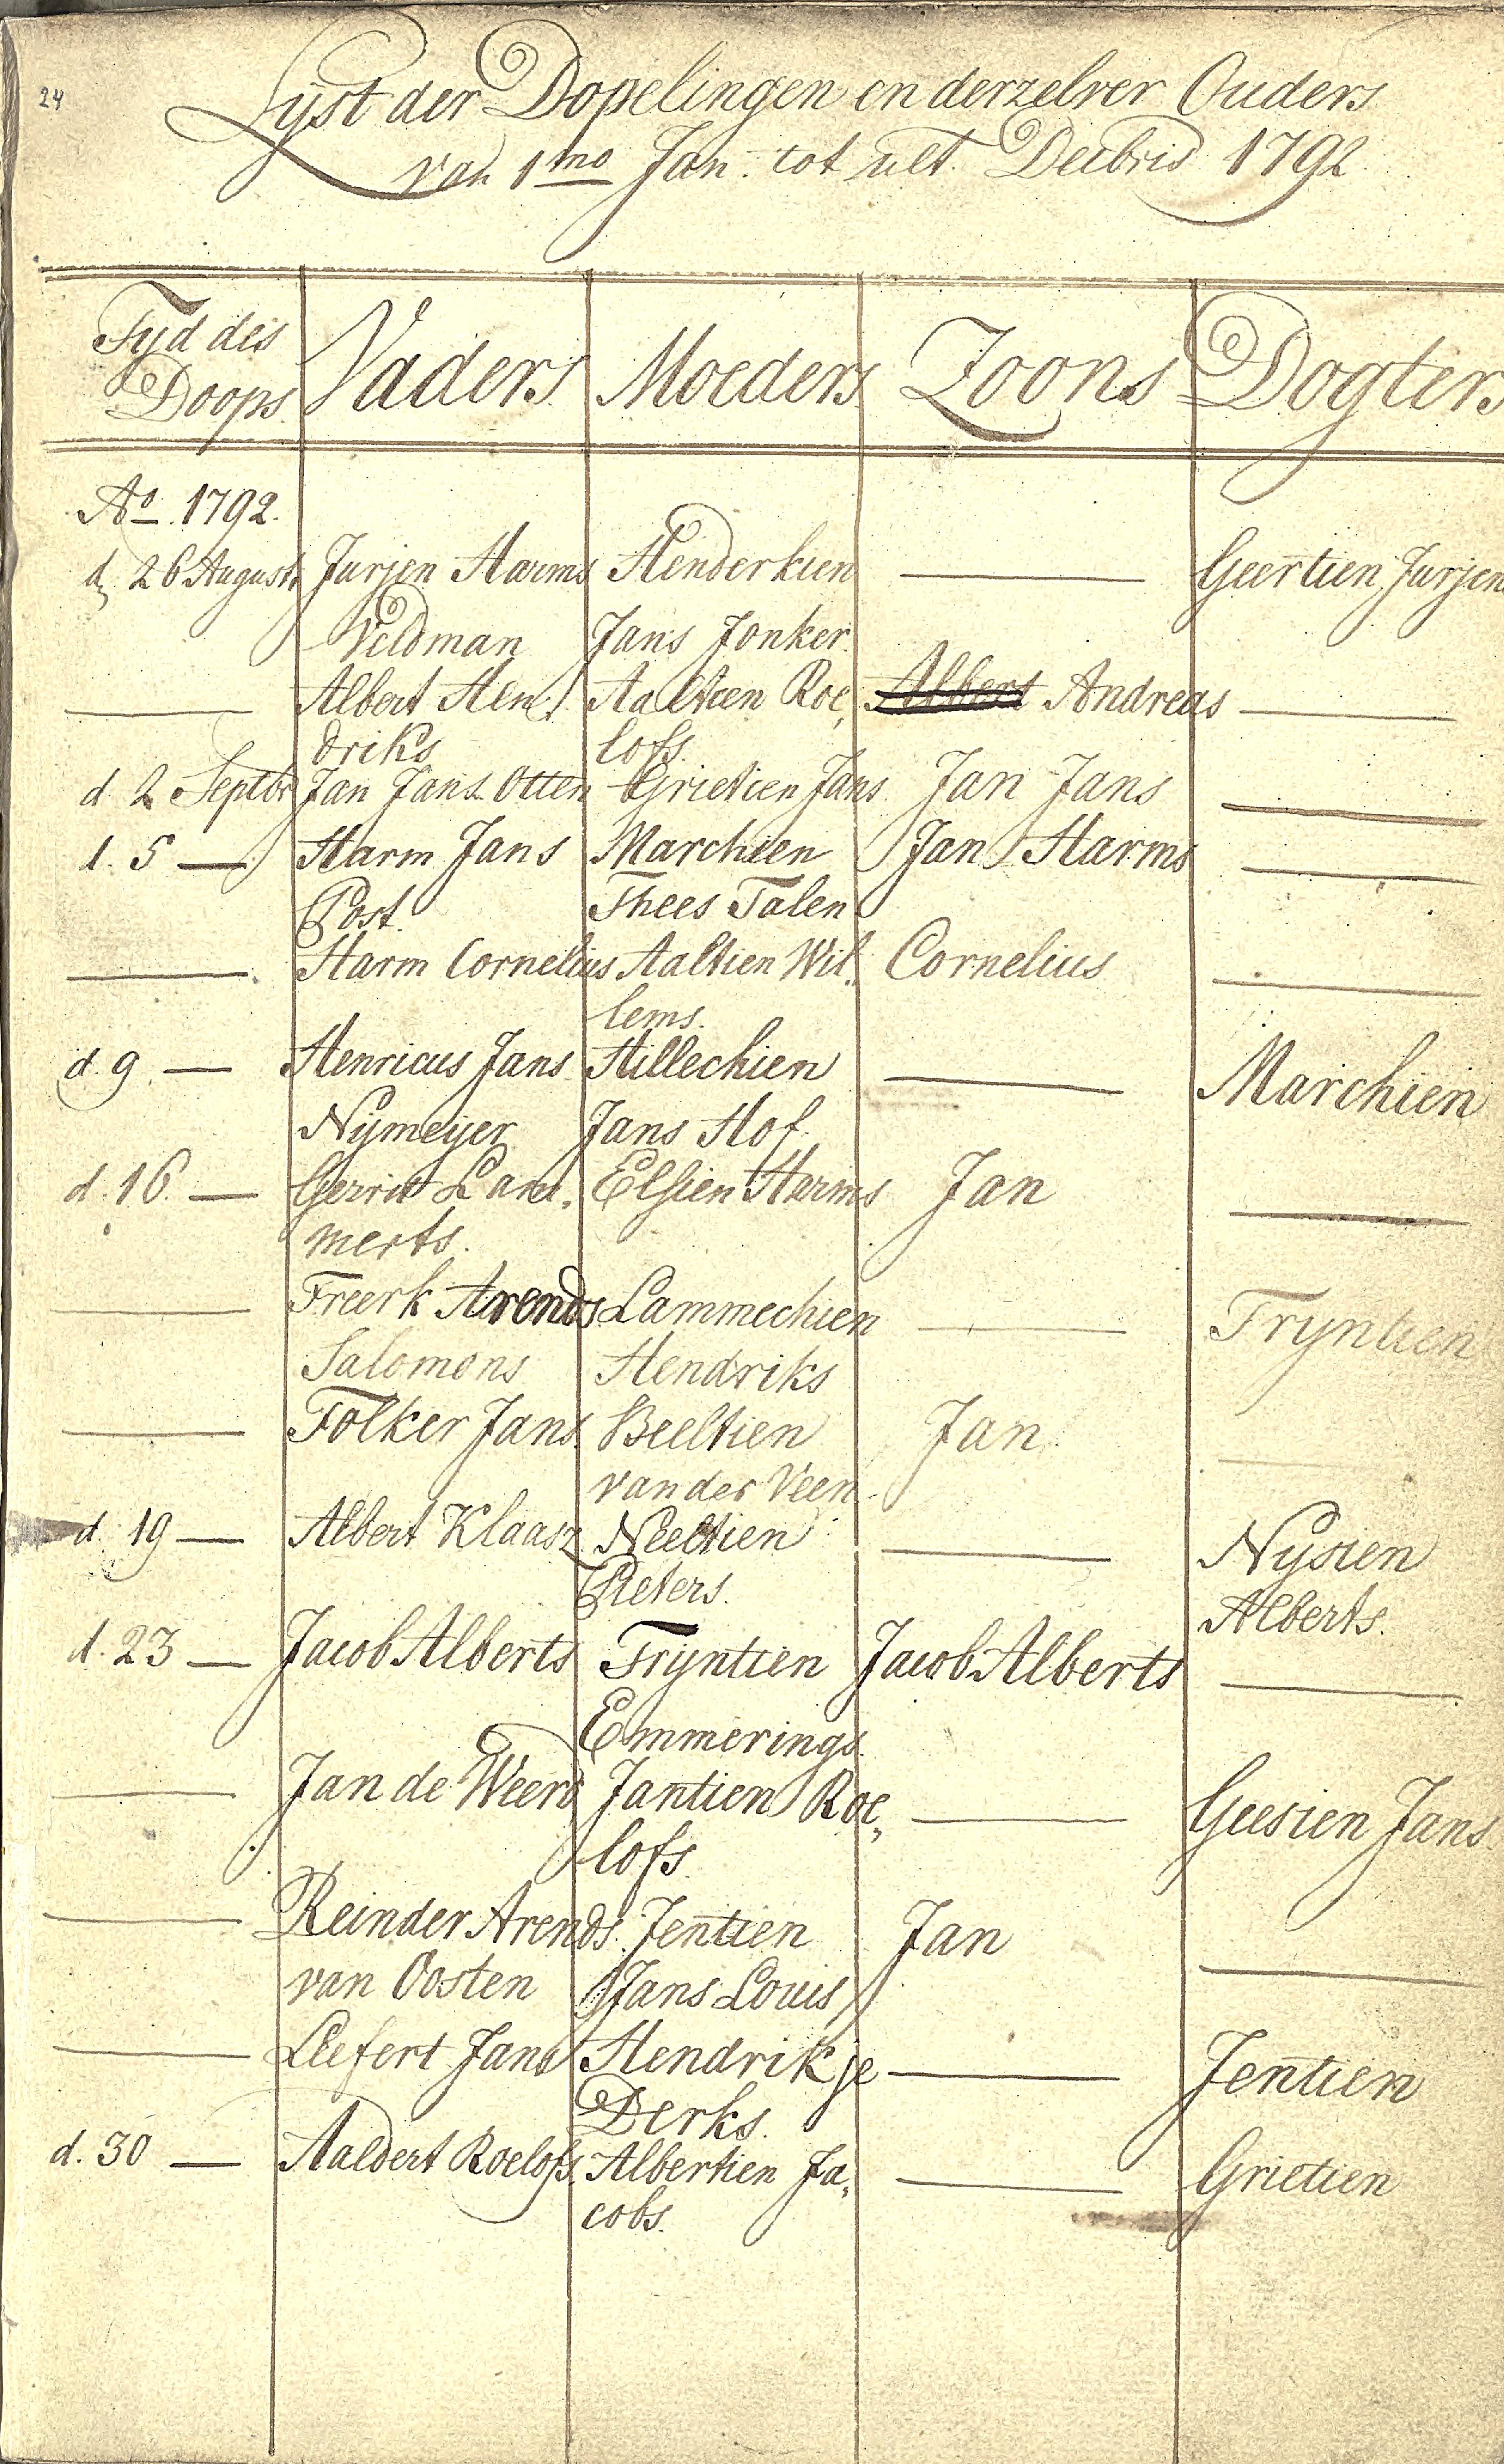 24
Lyst der Dopelingen en derzelver Ouders
van 1mo Jan. tot ult. Decbris 1792
Tyd des Doops. Vaders Moeders Zoons Dogters
Ao. 1792.
d 26 August. Jurjen Harms Henderkien — Geertien Jurjens
Veldman Jans Jonker.
— Albert Hen, Aaltien Roe, Albert Andreas —
driks lofs.
d. 2 Septbr Jan Jans Otten Grietien Jans Jan Jans —
d. 5 — Harm Jans Marchien Jan Harms —
Post. Thees Talen
— Harm Cornelius Aaltien Wil, Cornelius —
lems.
d. 9. — Henricus Jans Hillechien — Marchien
Nijmeijer Jans Hof.
d. 16. — Gerrit Lam, Elsien Harms Jan —
merts.
— Freerk Arends Lammechien — Tryntien
Salomons Hendriks
— Folker Jans. Beeltien Jan. —
van der Veen.
d. 19 — Albert Klaasz Neeltien — Nysien
Pieters. Alberts.
d. 23 — Jacob Alberts Tryntien Jacob Alberts —
Emmerings.
— Jan de Weerd Jantien Roe, — Geesien Jans.
lofs.
— Reinder Arends. Jentien Jan —
van Oosten Jans Louis
— Liefert Jans Hendrikje — Jentien
Derks.
d. 30 — Aaldert Roelofs. Albertien Ja, — Grietien
cobs.